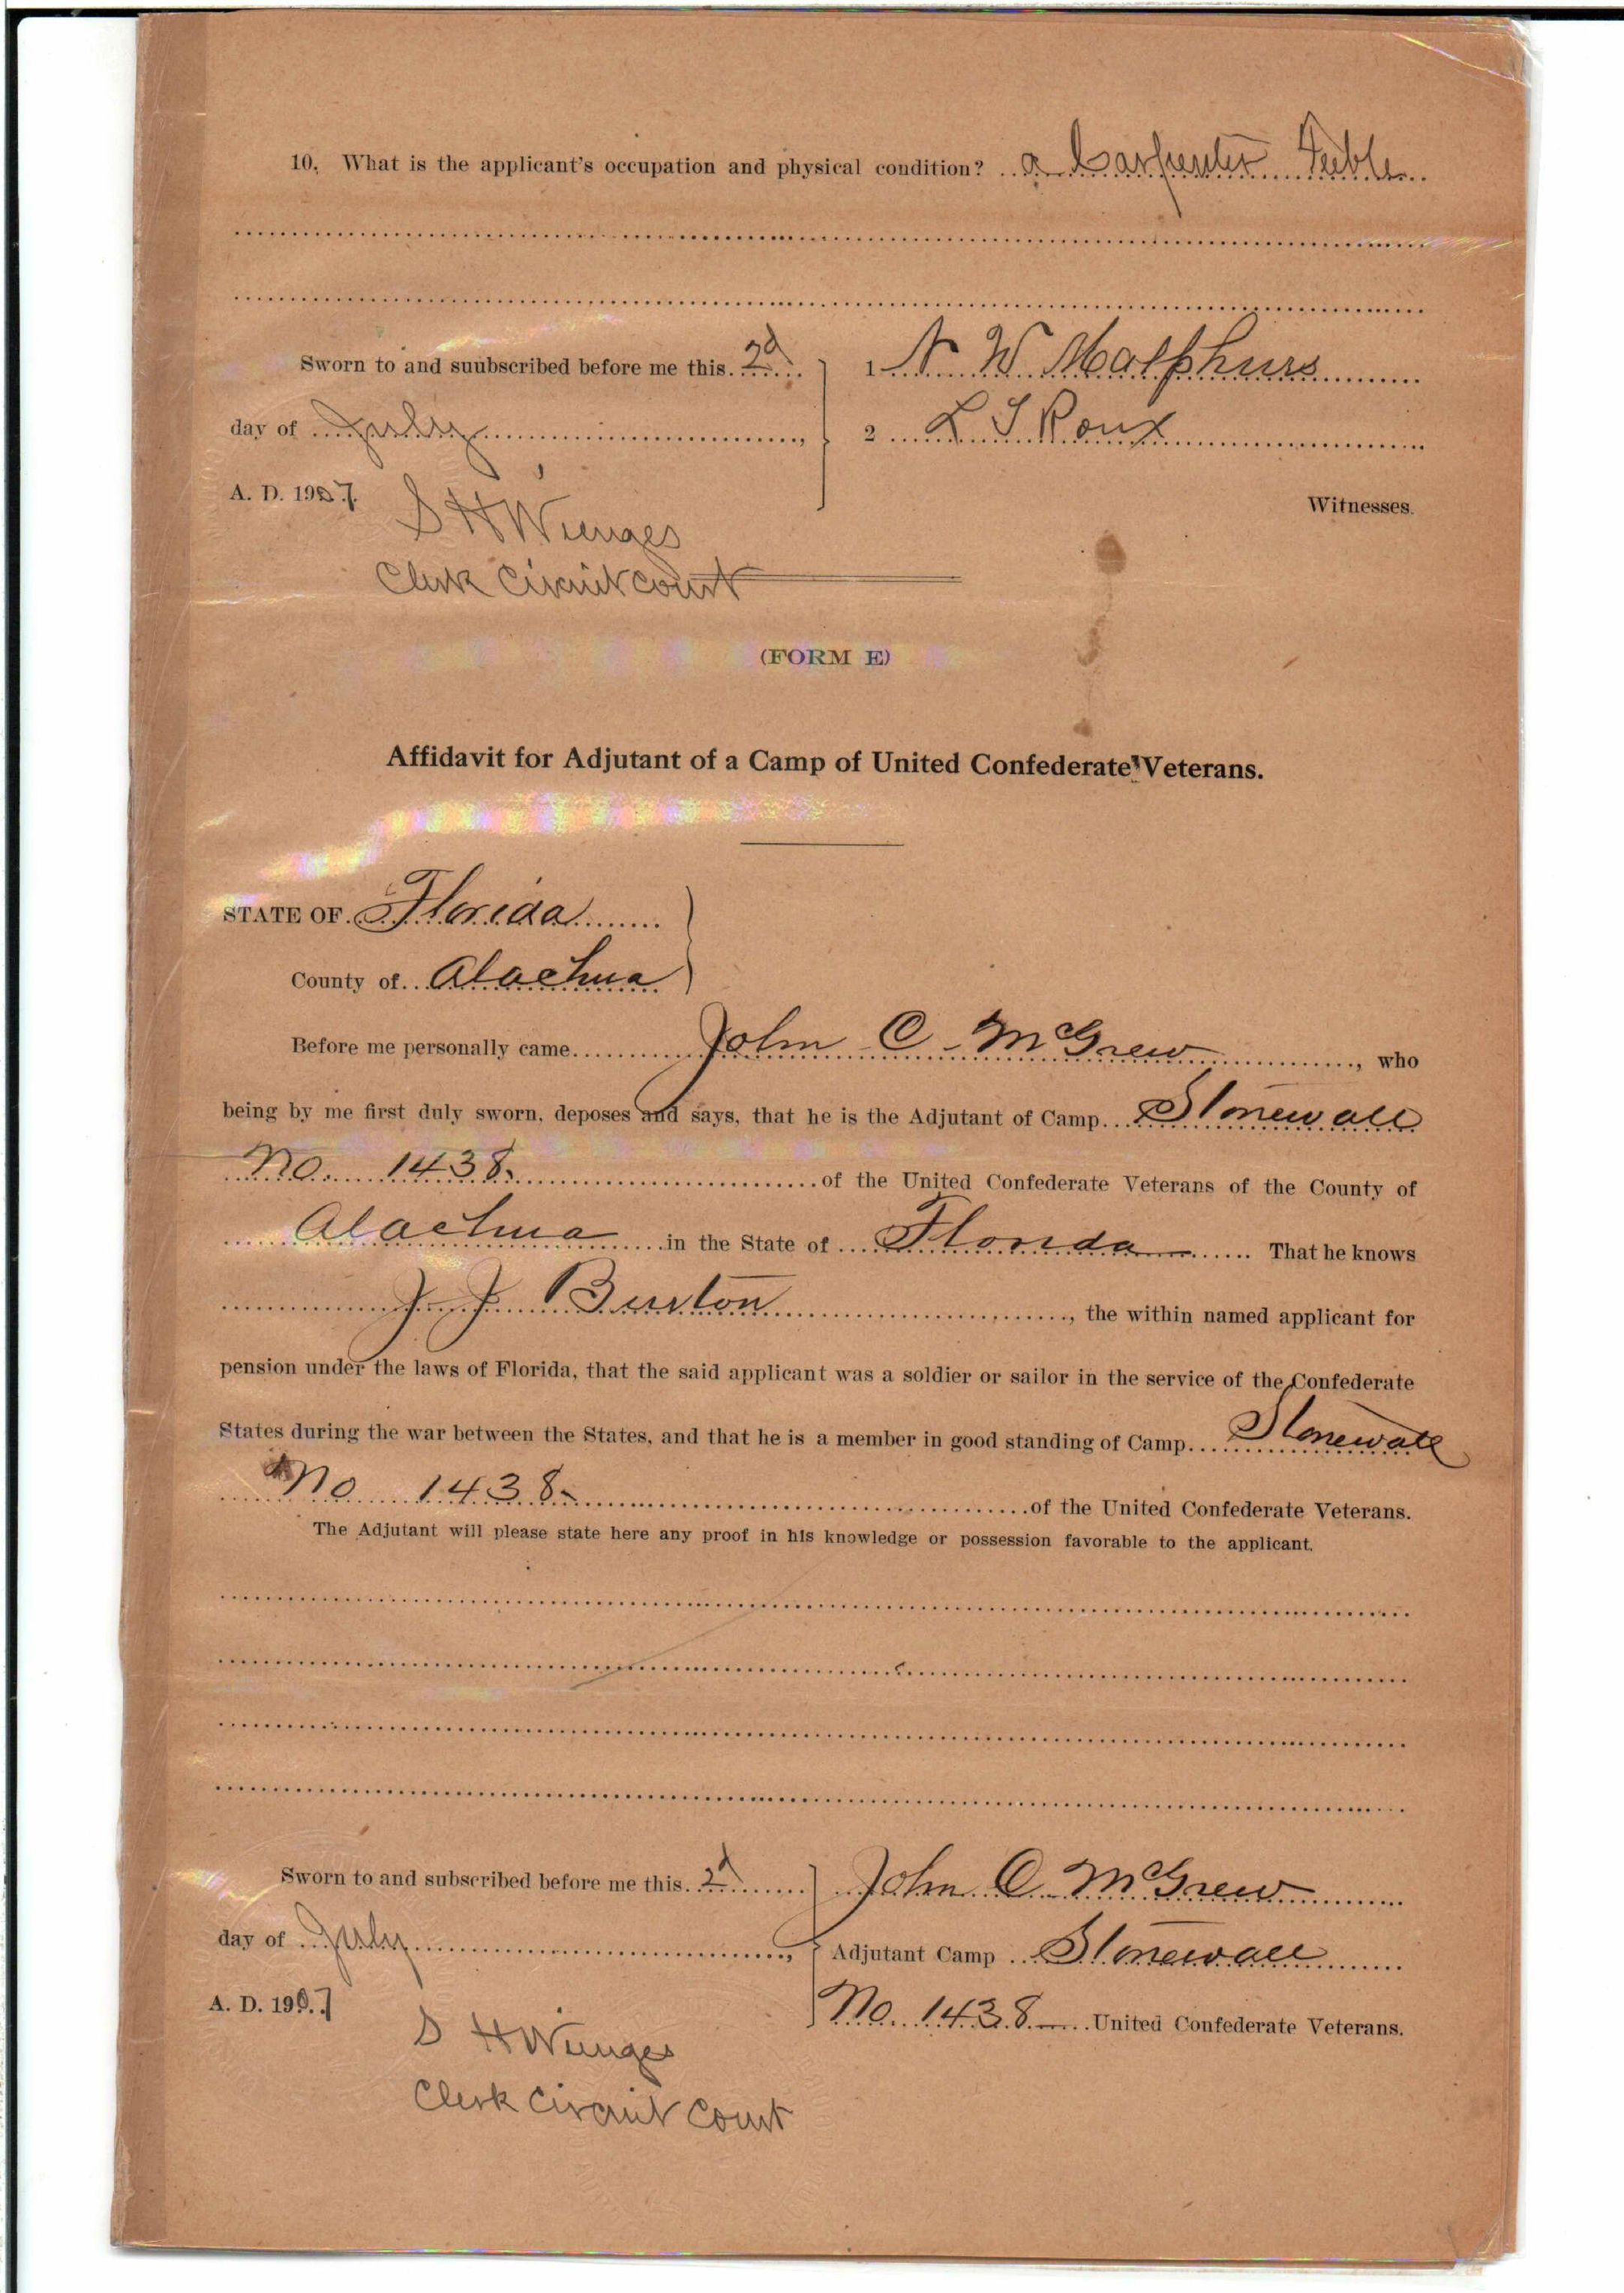 10. What is the applicant's occupation and physical condition? a Carpenter Feeble
Sworn to and suubscribed before me this 2d
1 N W Malphurs
day of July,
2 L T Roux
A. D. 1907.
Witnesses.
S H Wienges
Clerk Circuit Court
(FORM E)
Affidavit for Adjutant of a Camp of United Confederate Veterans.
STATE OF Florida
County of Alachua
Before me personally came John C. McGrew, who
being by me first duly sworn, deposes and says, that he is the Adjutant of Camp Stonewall
No. 1438 of the United Confederate Veterans of the County of
Alachua in the State of Florida That he knows
J J Burton, the within named applicant for
pension under the laws of Florida, that the said applicant was a soldier or sailor in the service of the Confederate
States during the war between the States, and that he is a member in good standing of Camp Stonewall
No 1438 of the United Confederate Veterans.
The Adjutant will please state here any proof in his knowledge or possession favorable to the applicant.
Sworn to and subscribed before me this 2d
John C. McGrew
day of July,
Adjutant Camp Stonewall
A. D. 1907
No. 1438 United Confederate Veterans.
S H Wienges
Clerk Circuit Court